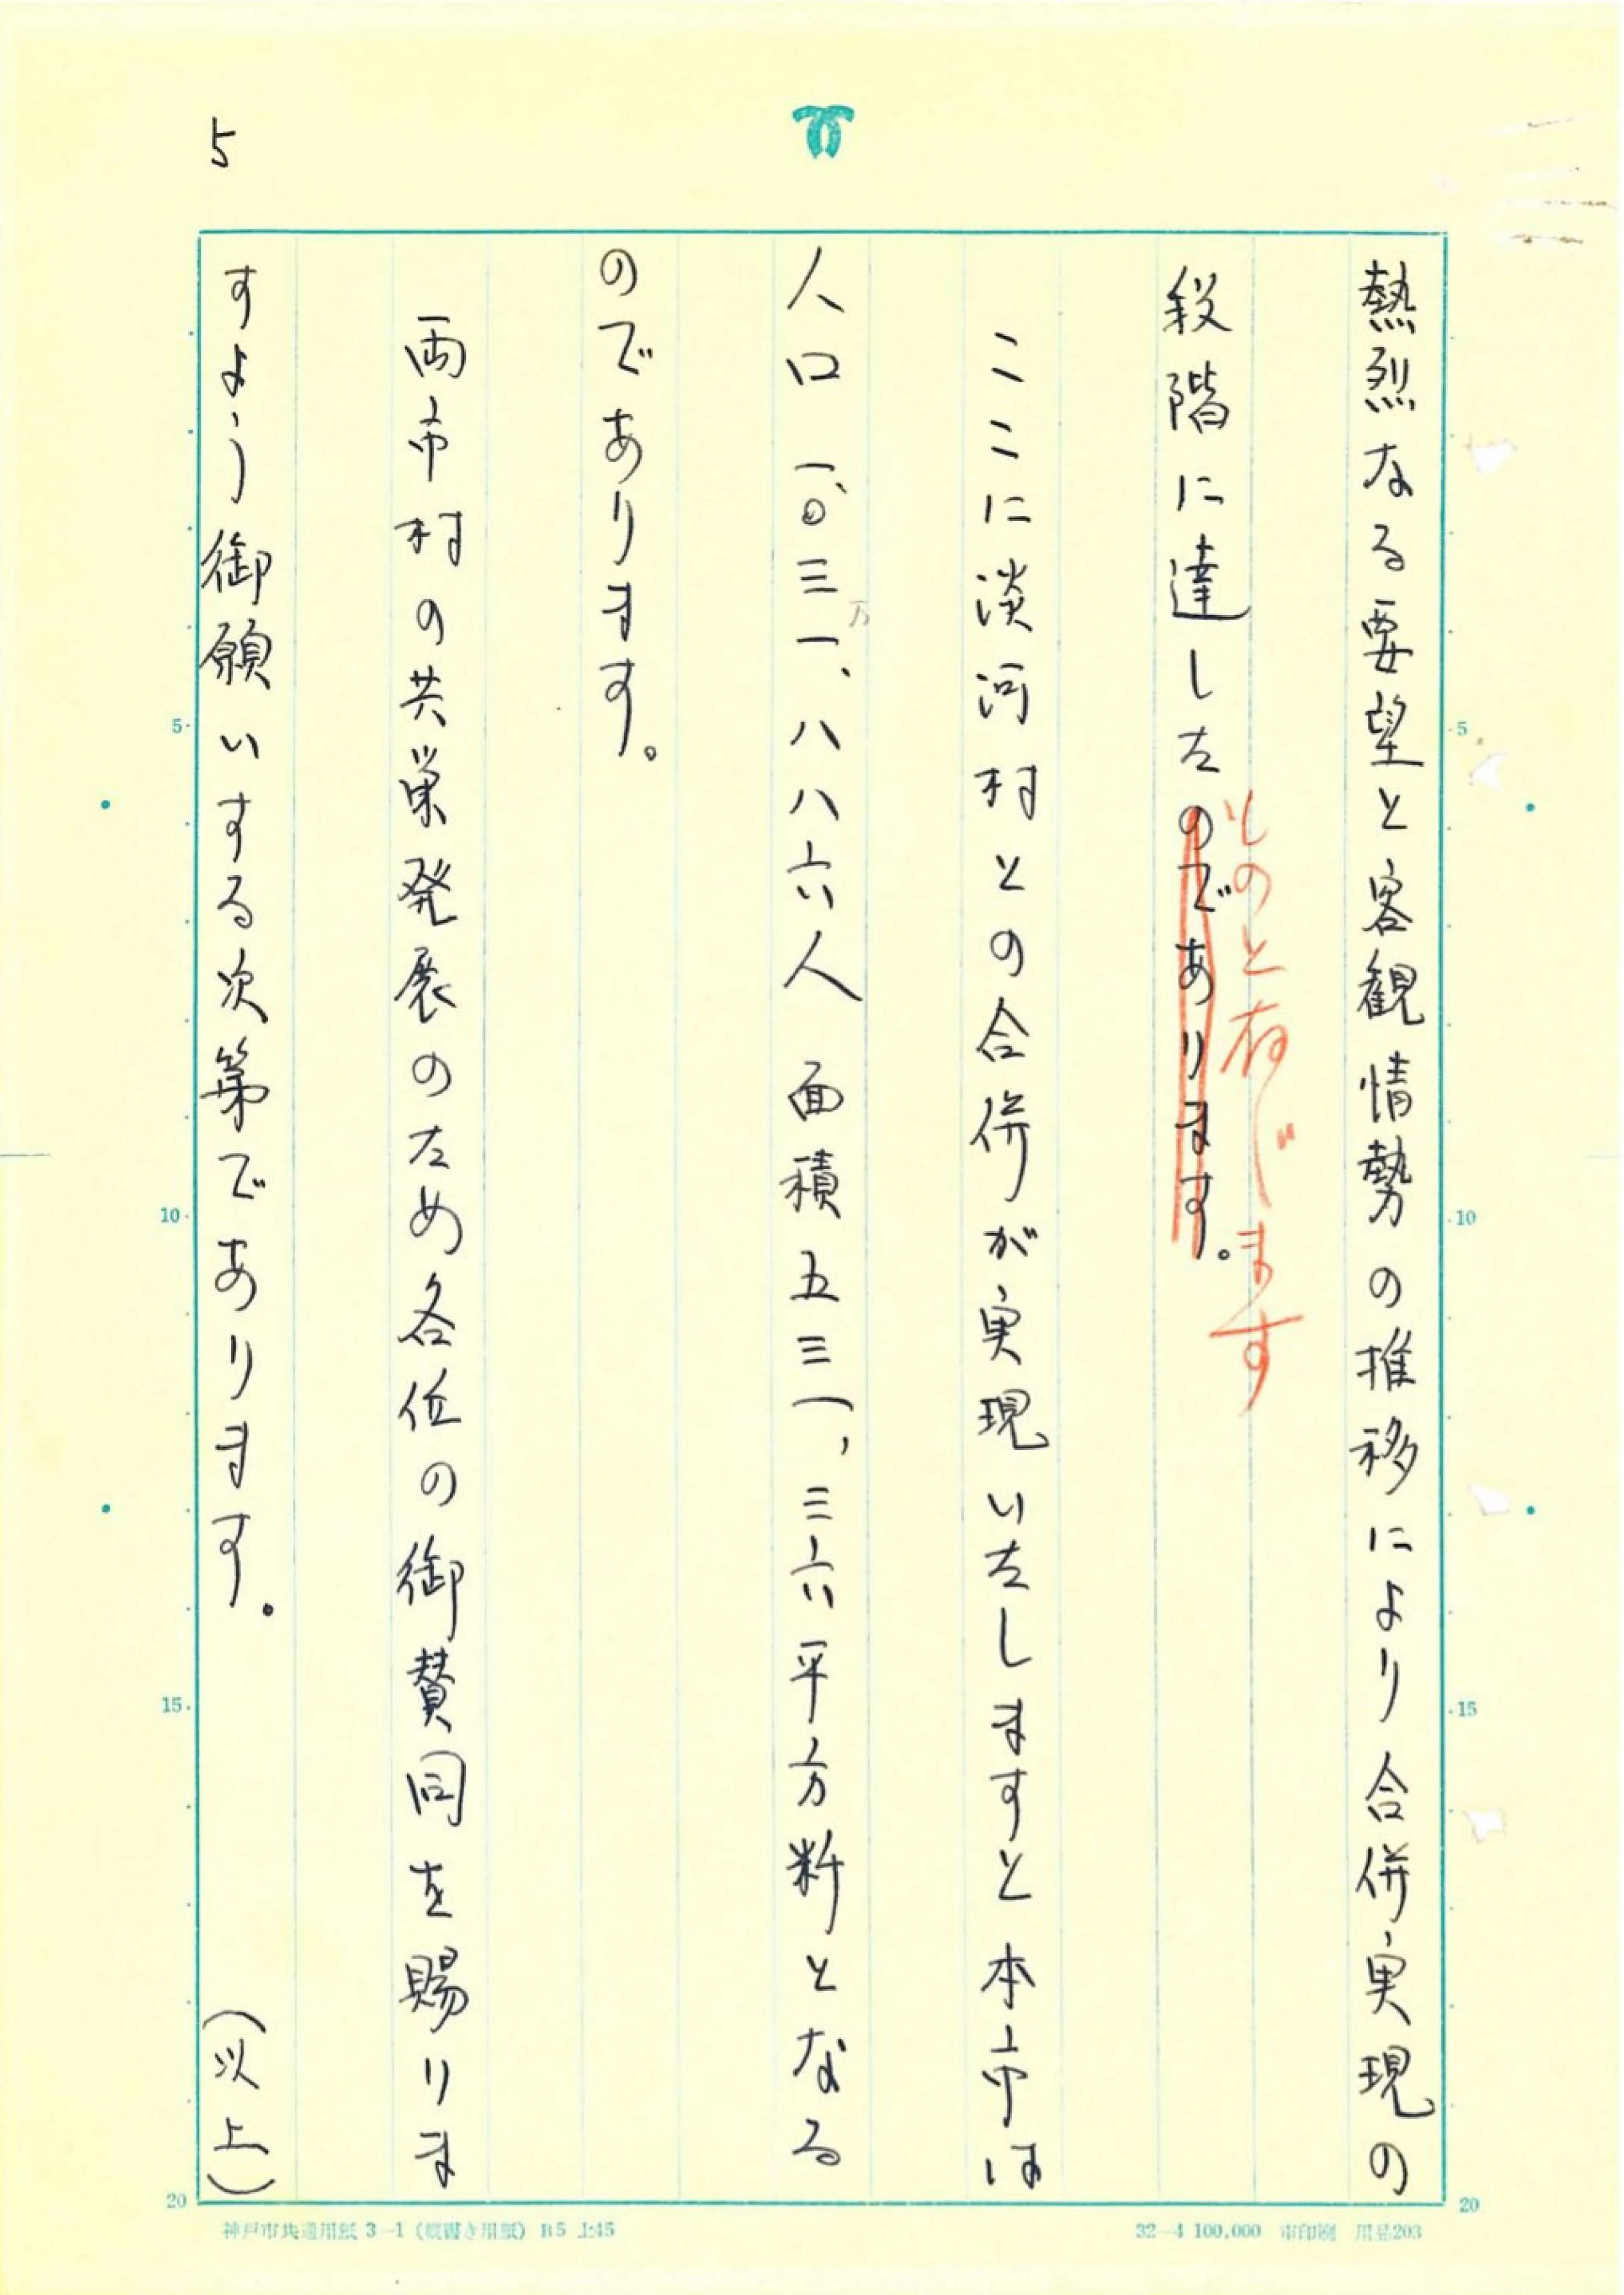 5
熱烈なる要望と客観情勢の推移により合併実現の
段階に達したのであります。
ものと存じます
ここに淡河村との合併が実現いたしますと本市は
人口一、〇三一、八八六人 面積五三一、三六平方粁となる
万
のであります。
両市村の共栄発展のため各位の御賛同を賜りま
すよう御願いする次第であります。 (以上)
5 10 15 20
5 10 15 20
神戸市共通用紙 3－1(縦書き用紙) B5 上45
32－4 100,000 市印刷 用品203